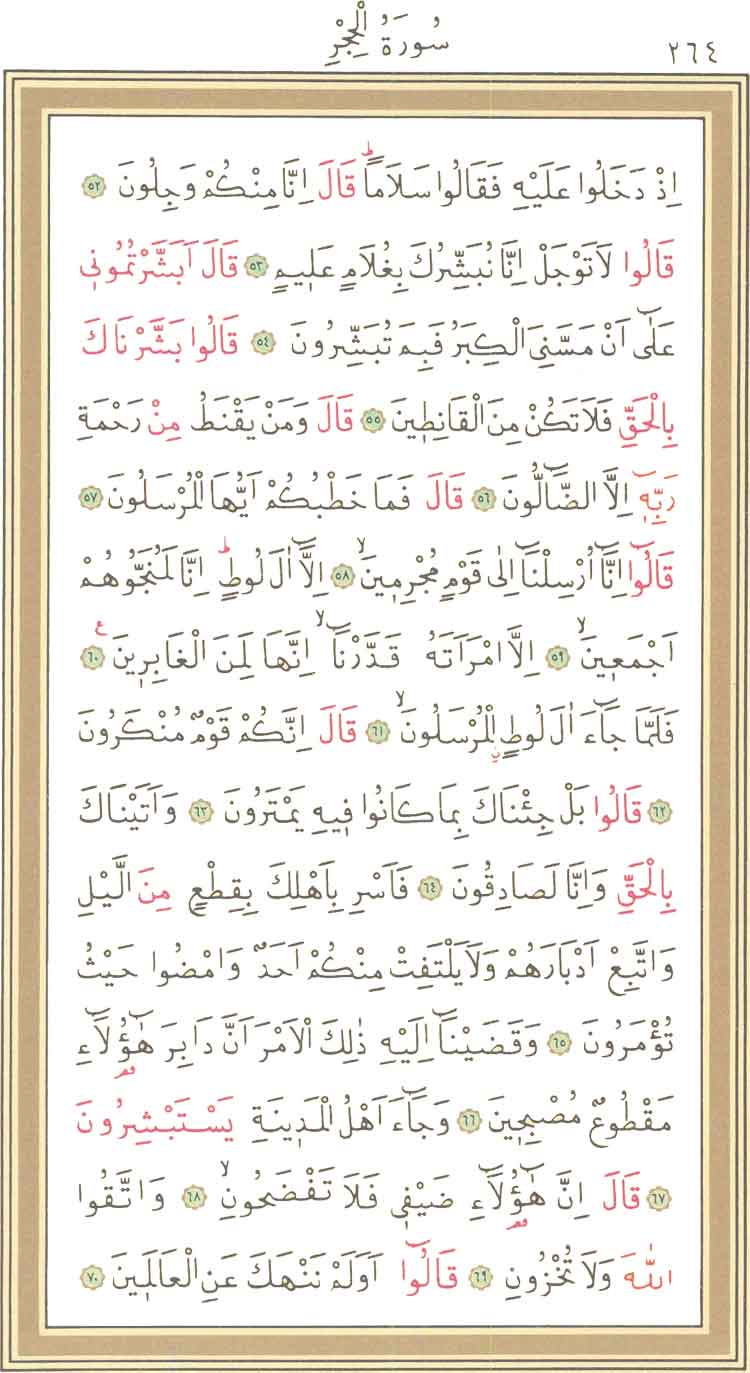 سُورَةُ الْحِجْرِ
٢٦٤
اِذْ دَخَلُوا عَلَيْهِ فَقَالُوا سَلَامًاۜ قَالَ اِنَّا مِنْكُمْ وَجِلُونَ ﴿٥٢﴾
قَالُوا لَا تَوْجَلْ اِنَّا نُبَشِّرُكَ بِغُلَامٍ عَل۪يمٍ ﴿٥٣﴾ قَالَ اَبَشَّرْتُمُون۪ي
عَلٰٓى اَنْ مَسَّنِيَ الْكِبَرُ فَبِمَ تُبَشِّرُونَ ﴿٥٤﴾ قَالُوا بَشَّرْنَاكَ
بِالْحَقِّ فَلَا تَكُنْ مِنَ الْقَانِط۪ينَ ﴿٥٥﴾ قَالَ وَمَنْ يَقْنَطُ مِنْ رَحْمَةِ
رَبِّه۪ٓ اِلَّا الضَّٓالُّونَ ﴿٥٦﴾ قَالَ فَمَا خَطْبُكُمْ اَيُّهَا الْمُرْسَلُونَ ﴿٥٧﴾
قَالُٓوا اِنَّٓا اُرْسِلْنَٓا اِلٰى قَوْمٍ مُجْرِم۪ينَۙ ﴿٥٨﴾ اِلَّٓا اٰلَ لُوطٍۜ اِنَّا لَمُنَجُّوهُمْ
اَجْمَع۪ينَۙ ﴿٥٩﴾ اِلَّا امْرَاَتَهُ قَدَّرْنَٓاۙ اِنَّهَا لَمِنَ الْغَابِر۪ينَ۟ ﴿٦٠﴾
فَلَمَّا جَٓاءَ اٰلَ لُوطٍۨ الْمُرْسَلُونَۙ ﴿٦١﴾ قَالَ اِنَّكُمْ قَوْمٌ مُنْكَرُونَ
﴿٦٢﴾ قَالُوا بَلْ جِئْنَاكَ بِمَا كَانُوا ف۪يهِ يَمْتَرُونَ ﴿٦٣﴾ وَاَتَيْنَاكَ
بِالْحَقِّ وَاِنَّا لَصَادِقُونَ ﴿٦٤﴾ فَاَسْرِ بِاَهْلِكَ بِقِطْعٍ مِنَ الَّيْلِ
وَاتَّبِعْ اَدْبَارَهُمْ وَلَا يَلْتَفِتْ مِنْكُمْ اَحَدٌ وَامْضُوا حَيْثُ
تُؤْمَرُونَ ﴿٦٥﴾ وَقَضَيْنَٓا اِلَيْهِ ذٰلِكَ الْاَمْرَ اَنَّ دَابِرَ هٰٓؤُ۬لَٓاءِ
مَقْطُوعٌ مُصْبِح۪ينَ ﴿٦٦﴾ وَجَٓاءَ اَهْلُ الْمَد۪ينَةِ يَسْتَبْشِرُونَ
﴿٦٧﴾ قَالَ اِنَّ هٰٓؤُ۬لَٓاءِ ضَيْف۪ي فَلَا تَفْضَحُونِۙ ﴿٦٨﴾ وَاتَّقُوا
اللّٰهَ وَلَا تُخْزُونِ ﴿٦٩﴾ قَالُٓوا اَوَلَمْ نَنْهَكَ عَنِ الْعَالَم۪ينَ ﴿٧٠﴾